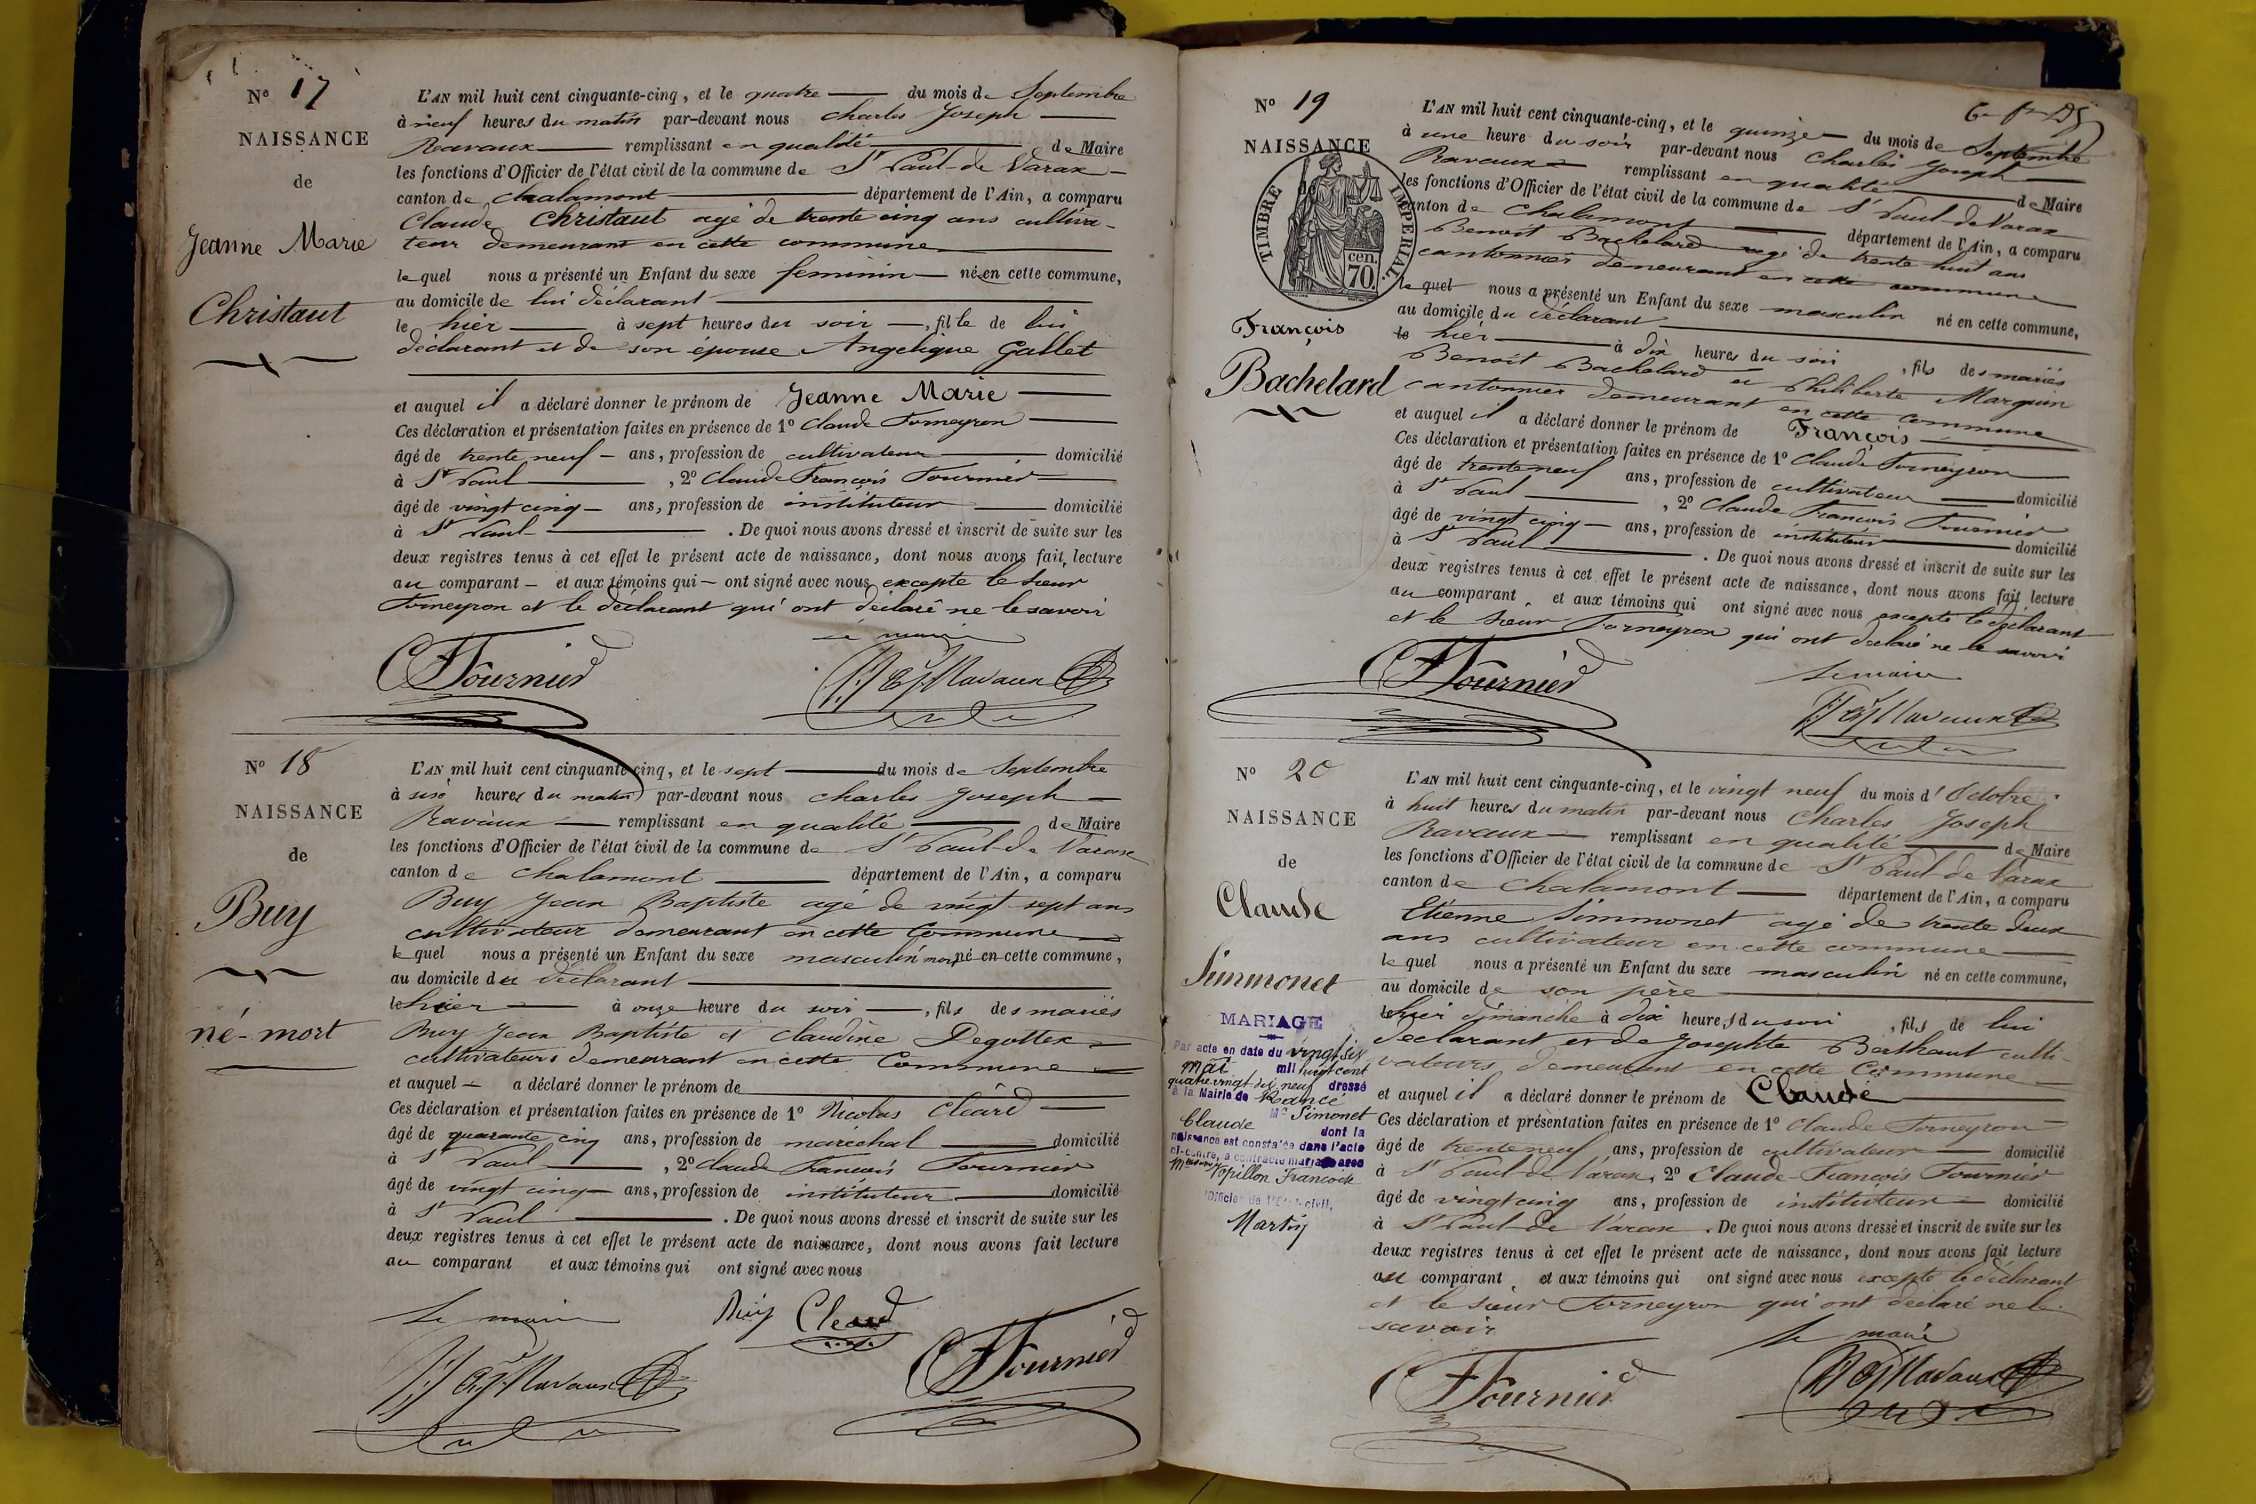 N° 17
NAISSANCE
de
Jeanne Marie
Christaut
L'AN mil huit cent cinquante-cinq, et le quatre du mois de Septembre
à neuf heures du matin par-devant nous Charles Joseph
Ravaux remplissant en qualité de Maire
les fonctions d'Officier de l'état civil de la commune de St Paul-de Varax
canton de Chalamont département de l'Ain, a comparu
Claude Christaut agé de trente cinq ans cultiva-
teur demeurant en cette commune
lequel nous a présenté un Enfant du sexe feminin né en cette commune,
au domicile de lui déclarant
le hier à sept heures du soir, fille de lui
déclarant et de son épouse Angelique Gallet
et auquel il a déclaré donner le prénom de Jeanne Marie
Ces déclaration et présentation faites en présence de 1° Claude Forneyron
âgé de trente neuf ans, profession de cultivateur domicilié
à St Paul, 2° Claude François Fournier
âgé de vingt cinq ans, profession de instituteur domicilié
à St Paul. De quoi nous avons dressé et inscrit de suite sur les
deux registres tenus à cet effet le présent acte de naissance, dont nous avons fait lecture
au comparant et aux témoins qui ont signé avec nous excepte le sieur
Forneyron et le déclarant qui ont déclaré ne le savoir
Le maire
CF Fournier Ravaux
N° 18
NAISSANCE
de
Buy
né-mort
L'AN mil huit cent cinquante-cinq, et le sept du mois de Septembre
à six heures du matin par-devant nous Charles Joseph
Ravaux remplissant en qualité de Maire
les fonctions d'Officier de l'état civil de la commune de St Paul-de Varax
canton de Chalamont département de l'Ain, a comparu
Buy Jean Baptiste agé de vingt sept ans
cultivateur demeurant en cette Commune
lequel nous a présenté un Enfant du sexe masculin mort né en cette commune,
au domicile du déclarant
le hier à onze heure du soir, fils des mariés
Buy Jean Baptiste et Claudine Degottex
cultivateurs demeurant en cette Commune
et auquel a déclaré donner le prénom de
Ces déclaration et présentation faites en présence de 1° Nicolas Cléard
âgé de quarante cinq ans, profession de maréchal domicilié
à St Paul, 2° Claude François Fournier
âgé de vingt cinq ans, profession de instituteur domicilié
à St Paul. De quoi nous avons dressé et inscrit de suite sur les
deux registres tenus à cet effet le présent acte de naissance, dont nous avons fait lecture
au comparant et aux témoins qui ont signé avec nous
Le maire Buy Cleard
Ravaux CF Fournier
N° 19
NAISSANCE
de
TIMBRE IMPERIAL.
cen.
70.
François
Bachelard
L'AN mil huit cent cinquante-cinq, et le quinze du mois de Septembre
à une heure du soir par-devant nous Charles Joseph
Ravaux remplissant en qualité de Maire
les fonctions d'Officier de l'état civil de la commune de St Paul-de Varax
canton de Chalamont département de l'Ain, a comparu
Benoit Bachelard agé de trente huit ans
cantonnier demeurant en cette commune
lequel nous a présenté un Enfant du sexe masculin né en cette commune,
au domicile du déclarant
le hier à dix heures du soir, fils des mariés
Benoit Bachelard et Philiberte Marguin
cantonnier demeurant en cette Commune
et auquel il a déclaré donner le prénom de François
Ces déclaration et présentation faites en présence de 1° Claude Forneyron
âgé de trente neuf ans, profession de cultivateur domicilié
à St Paul, 2° Claude François Fournier
âgé de vingt cinq ans, profession de instituteur domicilié
à St Paul. De quoi nous avons dressé et inscrit de suite sur les
deux registres tenus à cet effet le présent acte de naissance, dont nous avons fait lecture
au comparant et aux témoins qui ont signé avec nous excepte le déclarant
et le sieur Forneyron qui ont déclaré ne le savoir
Le maire
CF Fournier Ravaux
N° 20
NAISSANCE
de
Claude
Simmonet
MARIAGE
Par acte en date du vingt six
mai mil huit cent
quatre vingt dix neuf dressé
à la Mairie de Rancé
Mr Simonet
Claude dont la
naissance est constatée dans l'acte
ci-contre, a contracté mariage avec
Papillon Francoise
l'Officier de l'Etat-civil,
Martin
L'AN mil huit cent cinquante-cinq, et le vingt neuf du mois d'Octobre
à huit heures du matin par-devant nous Charles Joseph
Ravaux remplissant en qualité de Maire
les fonctions d'Officier de l'état civil de la commune de St Paul de Varax
canton de Chalamont département de l'Ain, a comparu
Etienne Simmonet agé de trente deux
ans cultivateur en cette commune
lequel nous a présenté un Enfant du sexe masculin né en cette commune,
au domicile de son père
le hier dimanche à dix heures du soir, fils de lui
déclarant et de Josephte Berthaut culti-
vateurs demeurant en cette Commune
et auquel il a déclaré donner le prénom de Claude
Ces déclaration et présentation faites en présence de 1° Claude Forneyron
âgé de trente neuf ans, profession de cultivateur domicilié
à St Paul de Varax, 2° Claude-François Fournier
âgé de vingt cinq ans, profession de instituteur domicilié
à St Paul de Varax. De quoi nous avons dressé et inscrit de suite sur les
deux registres tenus à cet effet le présent acte de naissance, dont nous avons fait lecture
au comparant et aux témoins qui ont signé avec nous excepte le déclarant
et le sieur Forneyron qui ont déclaré ne le
savoir
Le maire
CF Fournier Ravaux